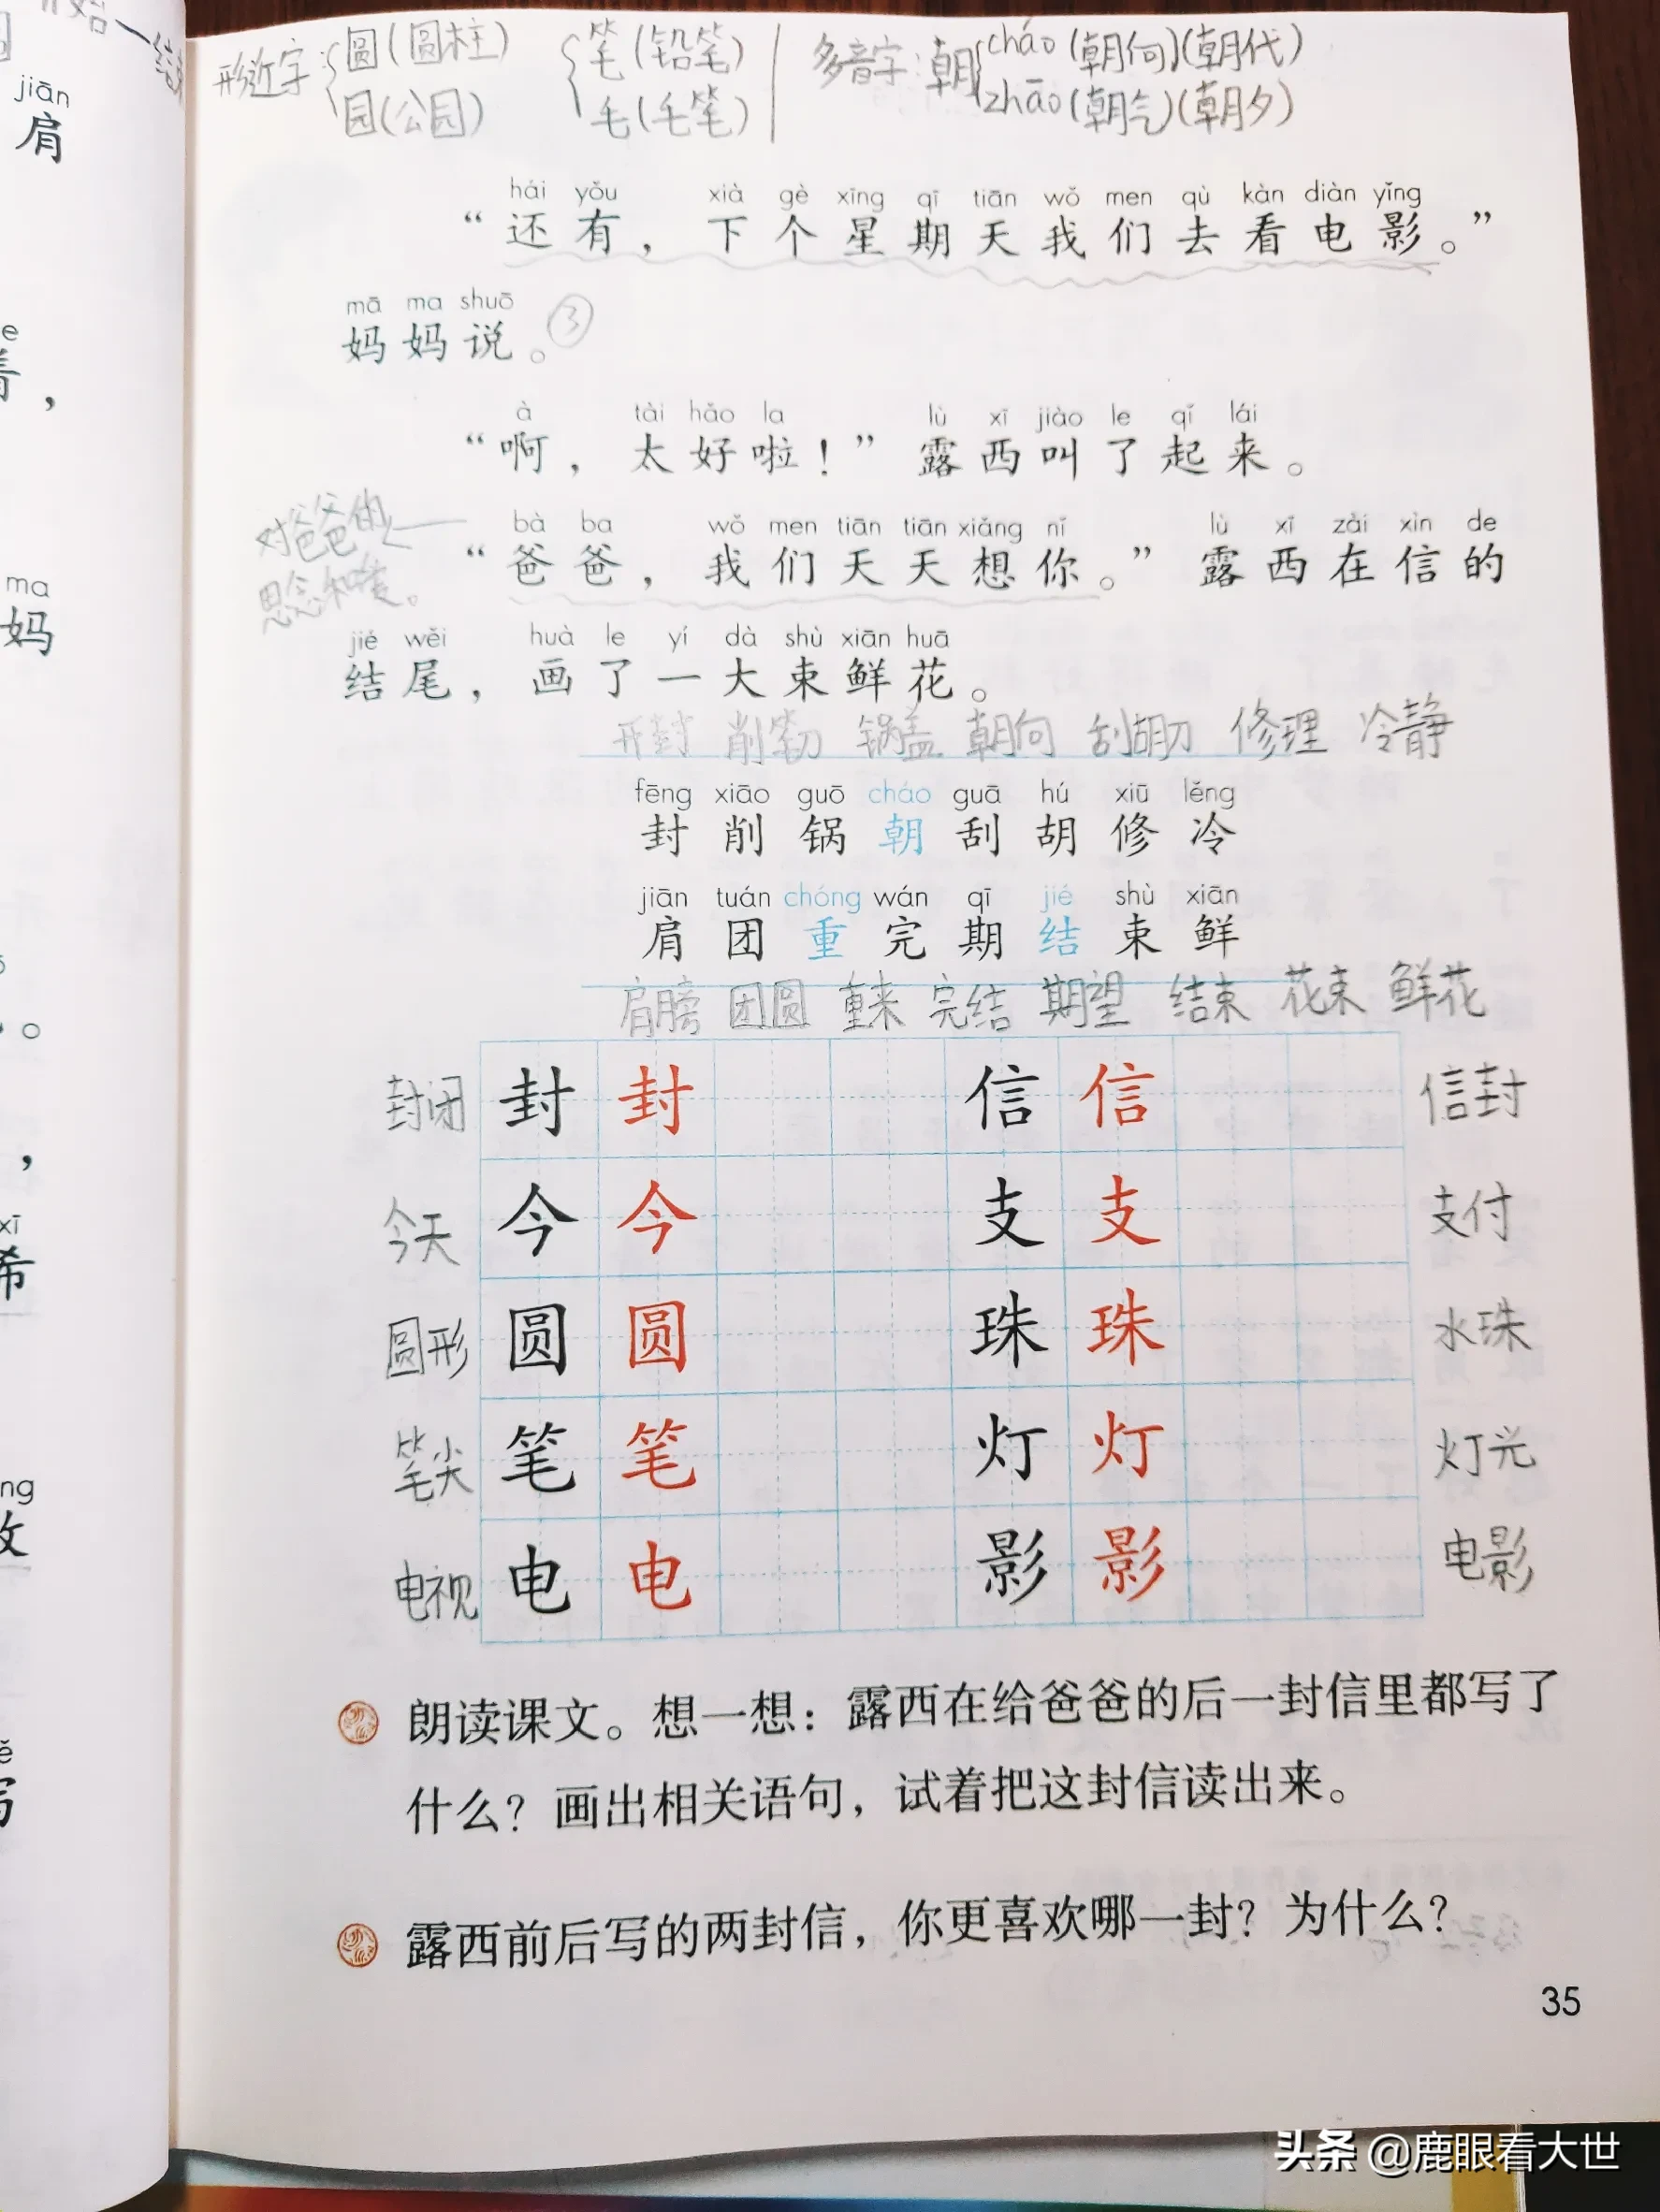 形近字：圆(圆柱) 笔(铅笔) 多音字：朝cháo(朝向)(朝代)
园(公园) 毛(毛笔) zhāo(朝气)(朝夕)
hái yǒu xià gè xīng qī tiān wǒ men qù kàn diàn yǐng
“还有，下个星期天我们去看电影。”
mā ma shuō
妈妈说。③
à tài hǎo la lù xī jiào le qǐ lái
“啊，太好啦！”露西叫了起来。
对爸爸的
思念和爱。
bà ba wǒ men tiān tiān xiǎng nǐ lù xī zài xìn de
“爸爸，我们天天想你。”露西在信的
jié wěi huà le yí dà shù xiān huā
结尾，画了一大束鲜花。
开封 削笔刀 锅盖 朝向 刮胡刀 修理 冷静
fēng xiāo guō cháo guā hú xiū lěng
封 削 锅 朝 刮 胡 修 冷
jiān tuán chóng wán qī jié shù xiān
肩 团 重 完 期 结 束 鲜
肩膀 团圆 重来 完结 期望 结束 花束 鲜花
封闭 封 封 信 信 信封
今天 今 今 支 支 支付
圆形 圆 圆 珠 珠 水珠
笔尖 笔 笔 灯 灯 灯光
电视 电 电 影 影 电影
朗读课文。想一想：露西在给爸爸的后一封信里都写了
什么？画出相关语句，试着把这封信读出来。
露西前后写的两封信，你更喜欢哪一封？为什么？
35
jiān
肩
ma
妈
xī
希
头条 @鹿眼看大世